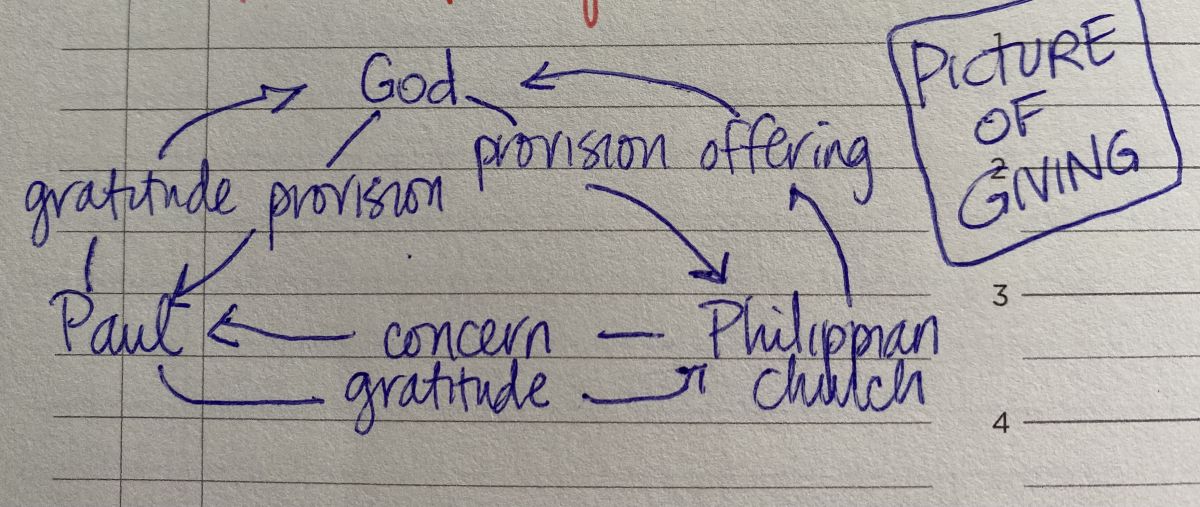 God
provision offering
gratitude provision
Paul concern Philippian
gratitude church
PICTURE
OF
GIVING
2
3
4